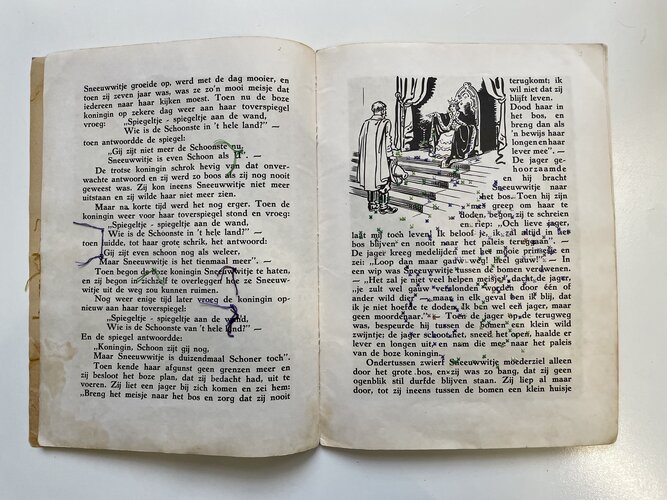 Sneeuwwitje groeide op, werd met de dag mooier, en
toen zij zeven jaar was, was ze zo'n mooi meisje dat
iedereen naar haar kijken moest. Toen nu de boze
koningin op zekere dag weer aan haar toverspiegel
vroeg: „Spiegeltje - spiegeltje aan de wand,
Wie is de Schoonste in 't hele land?" —
toen antwoordde de spiegel:
„Gij zijt niet meer de Schoonste nu,
Sneeuwwitje is even Schoon als
De trotse koningin schrok hevig van dat onver-
wachte antwoord en zij werd zo boos als zij nog nooit
geweest was. Zij kon ineens Sneeuwwitje niet meer
uitstaan en zij wilde haar niet meer zien.
Maar na korte tijd werd het nog erger. Toen de
koningin weer voor haar toverspiegel stond en vroeg:
„Spiegeltje - spiegeltje aan de wand,
Wie is de Schoonste in 't hele land?" —
toen luidde, tot haar grote schrik, het antwoord:
„Gij zijt even schoon nog als weleer,
Maar Sneeuwwitje is het tienmaal meer". —
Toen begon de boze koningin Sneeuwwitje te haten,
en zij begon in zichzelf te overleggen hoe ze Sneeuw-
witje uit de weg zou kunnen ruimen.
Nog weer enige tijd later vroeg de koningin op-
nieuw aan haar toverspiegel:
„Spiegeltje - spiegeltje aan de wand,
Wie is de Schoonste van 't hele land?" —
En de spiegel antwoordde:
„Koningin, Schoon zijt gij nog,
Maar Sneeuwwitje is duizendmaal Schoner toch".
Toen kende haar afgunst geen grenzen meer en
zij besloot het boze plan, dat zij bedacht had, uit te
voeren. Zij liet een jager bij zich komen en zei hem:
„Breng het meisje naar het bos en zorg dat zij nooit
terugkomt; ik
wil niet dat zij
blijft leven.
Dood haar in
het bos, en
breng dan als
'n bewijs haar
longen en haar
lever mee". —
De jager ge-
hoorzaamde
en hij bracht
Sneeuwwitje naar
het bos. Toen hij zijn
mes greep om haar te
doden, begon zij te schreien
en riep: „Och lieve jager,
laat mij toch leven. Ik beloof je, ik zal altijd in het
bos blijven en nooit naar het paleis teruggaan". —
De jager kreeg medelijden met het mooie prinsesje
en zei: „Loop dan maar gauw weg! Heel gauw!" — In
een wip was Sneeuwwitje tussen de bomen verdwenen.
— „Het zal je niet veel helpen meisje", dacht de jager,
„je zult wel gauw verslonden worden door één of
ander wild dier — maar in elk geval ben ik blij, dat
ik je niet hoefde te doden. Ik ben wel een jager, maar
geen moordenaar." — Toen de jager op de terugweg
was, bespeurde hij tussen de bomen een klein wild
zwijntje; de jager schoot het, sneed het open, haalde er
lever en longen uit en nam die mee naar het paleis
van de boze koningin.
Ondertussen zwierf Sneeuwwitje moederziel alleen
door het grote bos, en zij was zo bang, dat zij geen
ogenblik stil durfde blijven staan. Zij liep al maar
door, tot zij ineens tussen de bomen een klein huisje